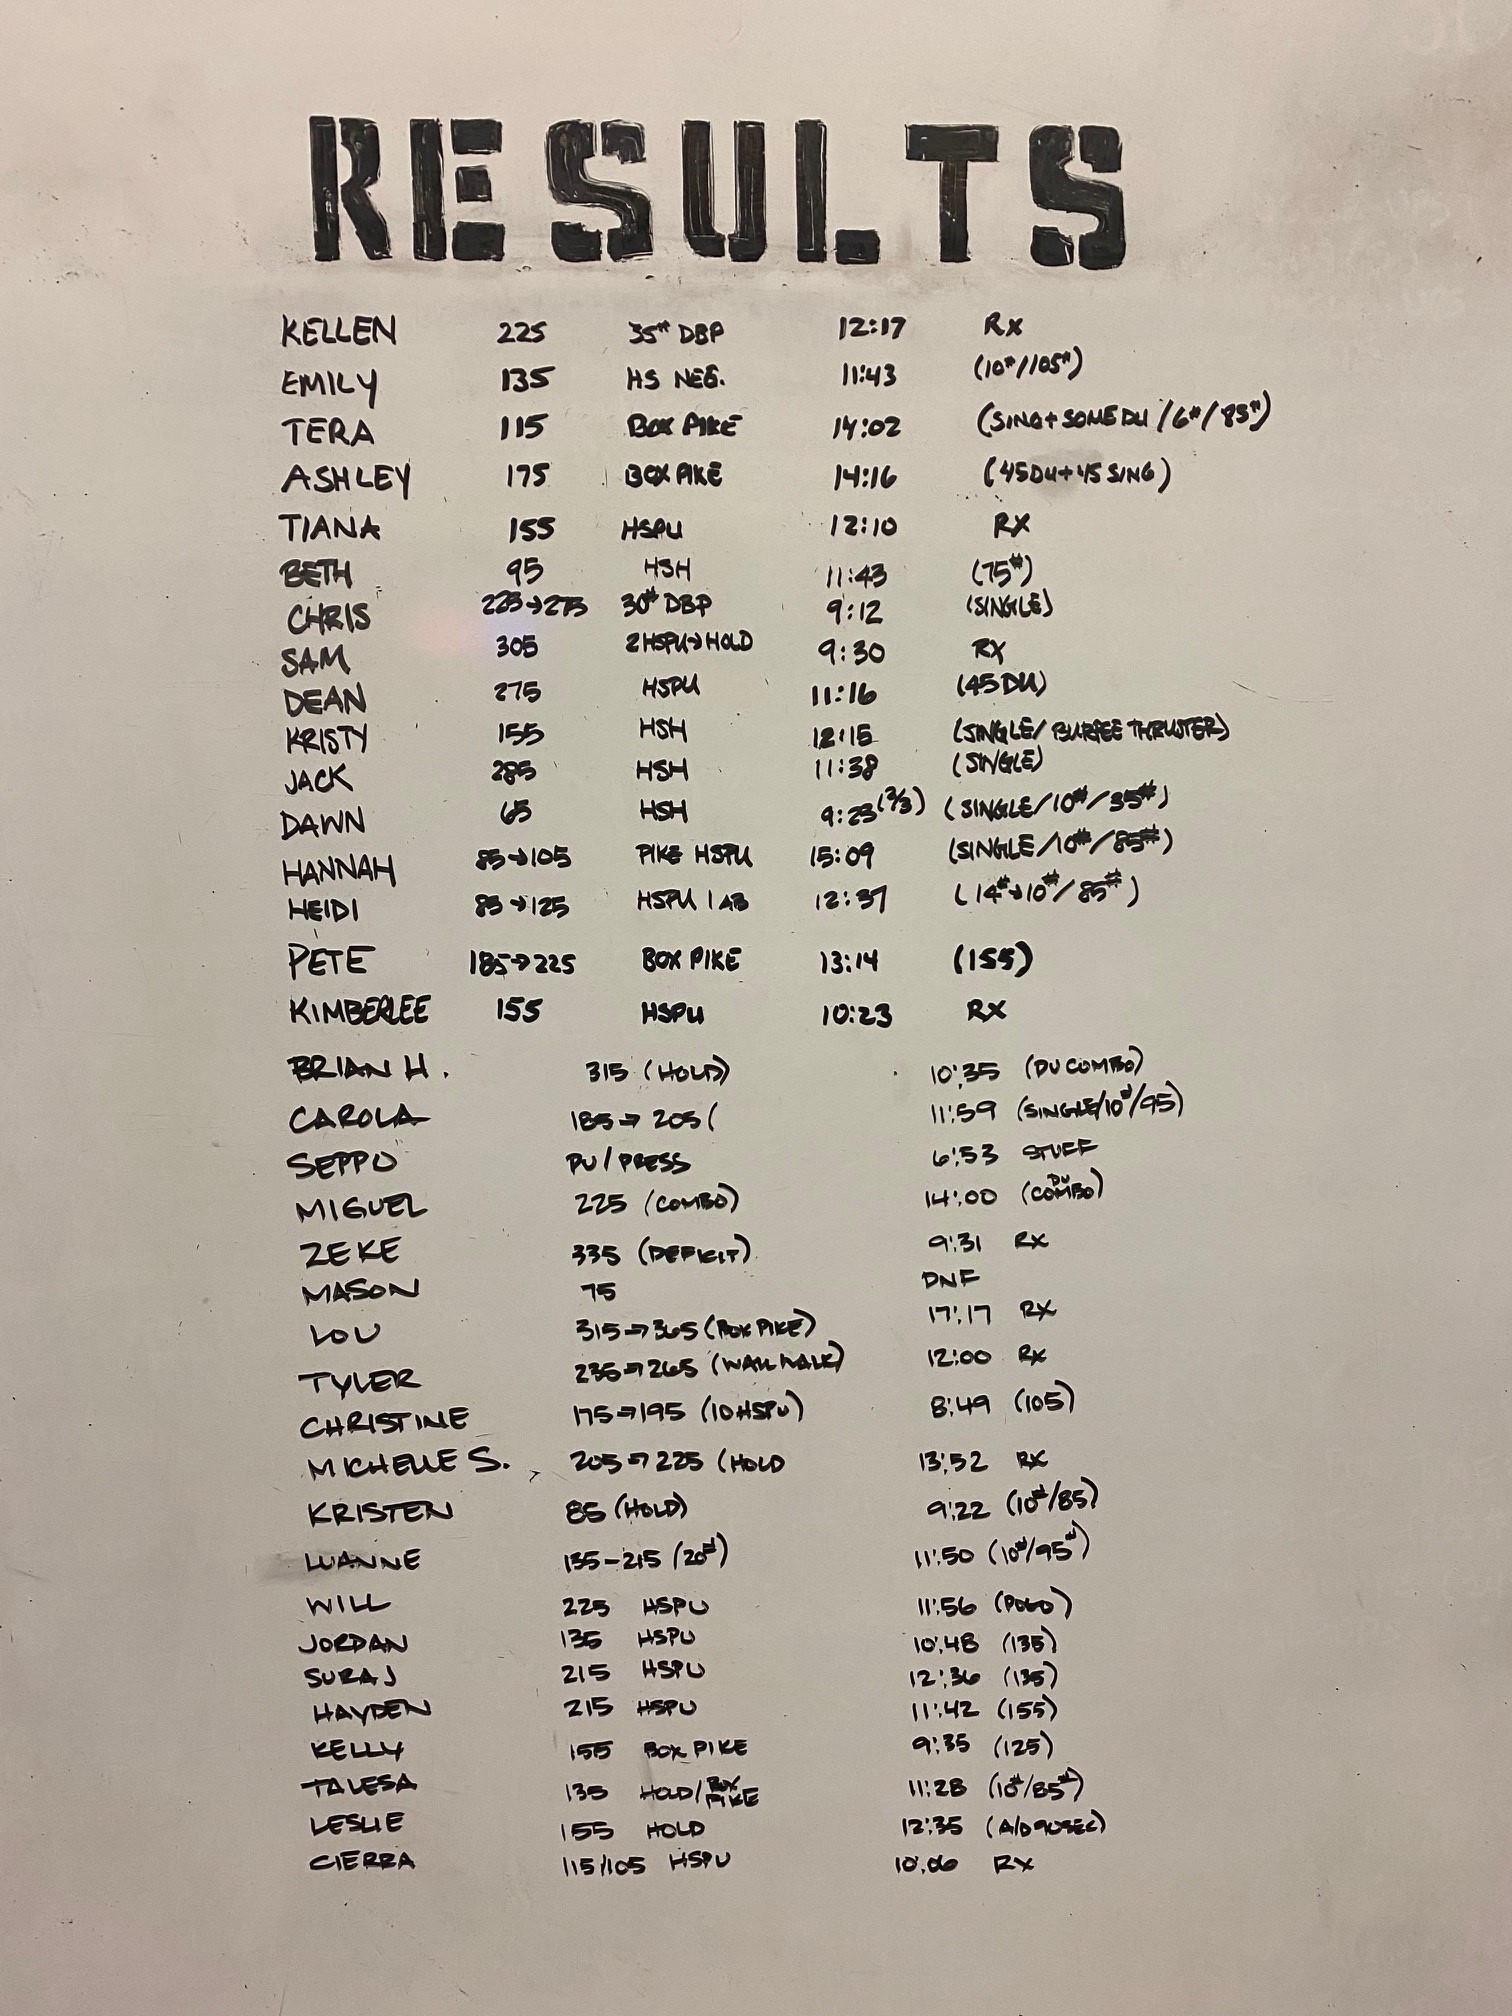 RESULTS
KELLEN 225 35# DBP 12:17 RX
EMILY 135 HS NEG. 11:43 (10#/105#)
TERA 115 BOX PIKE 14:02 (SING+SOME DU/6#/85#)
ASHLEY 175 BOX PIKE 14:16 (45DU+45 SING)
TIANA 155 HSPU 12:10 RX
BETH 95 HSH 11:43 (75#)
CHRIS 225→275 30# DBP 9:12 (SINGLE)
SAM 305 2HSPU→HOLD 9:30 RX
DEAN 275 HSPU 11:16 (45 DU)
KRISTY 155 HSH 12:15 (SINGLE/BURPEE THRUSTER)
JACK 285 HSH 11:38 (SINGLE)
DAWN 65 HSH 9:23 (2/3) (SINGLE/10#/35#)
HANNAH 85→105 PIKE HSPU 15:09 (SINGLE/10#/85#)
HEIDI 85→125 HSPU 1 AB 12:37 (14#→10#/85#)
PETE 185→225 BOX PIKE 13:14 (155)
KIMBERLEE 155 HSPU 10:23 RX
BRIAN H. 315 (HOLD) 10:35 (DU COMBO)
CAROLA 185→205 ( 11:59 (SINGLE/10#/95)
SEPPO PU/PRESS 6:53 STUFF
MIGUEL 225 (COMBO) 14:00 (DU COMBO)
ZEKE 335 (DEFICIT) 9:31 RX
MASON 75 DNF
LOU 315→365 (BOX PIKE) 17:17 RX
TYLER 235→265 (WALL WALK) 12:00 RX
CHRISTINE 175→195 (10 HSPU) 8:49 (105)
MICHELLE S. 205→225 (HOLD 13:52 RX
KRISTEN 85 (HOLD) 9:22 (10#/85)
LUANNE 135-215 (20#) 11:50 (10#/95#)
WILL 225 HSPU 11:56 (POGO)
JORDAN 135 HSPU 10:48 (135)
SURAJ 215 HSPU 12:36 (135)
HAYDEN 215 HSPU 11:42 (155)
KELLY 155 BOX PIKE 9:35 (125)
TALESA 135 HOLD/BOX PIKE 11:28 (10#/85#)
LESLIE 155 HOLD 12:35 (A/D 90SEC)
CIERRA 115/105 HSPU 10:06 RX